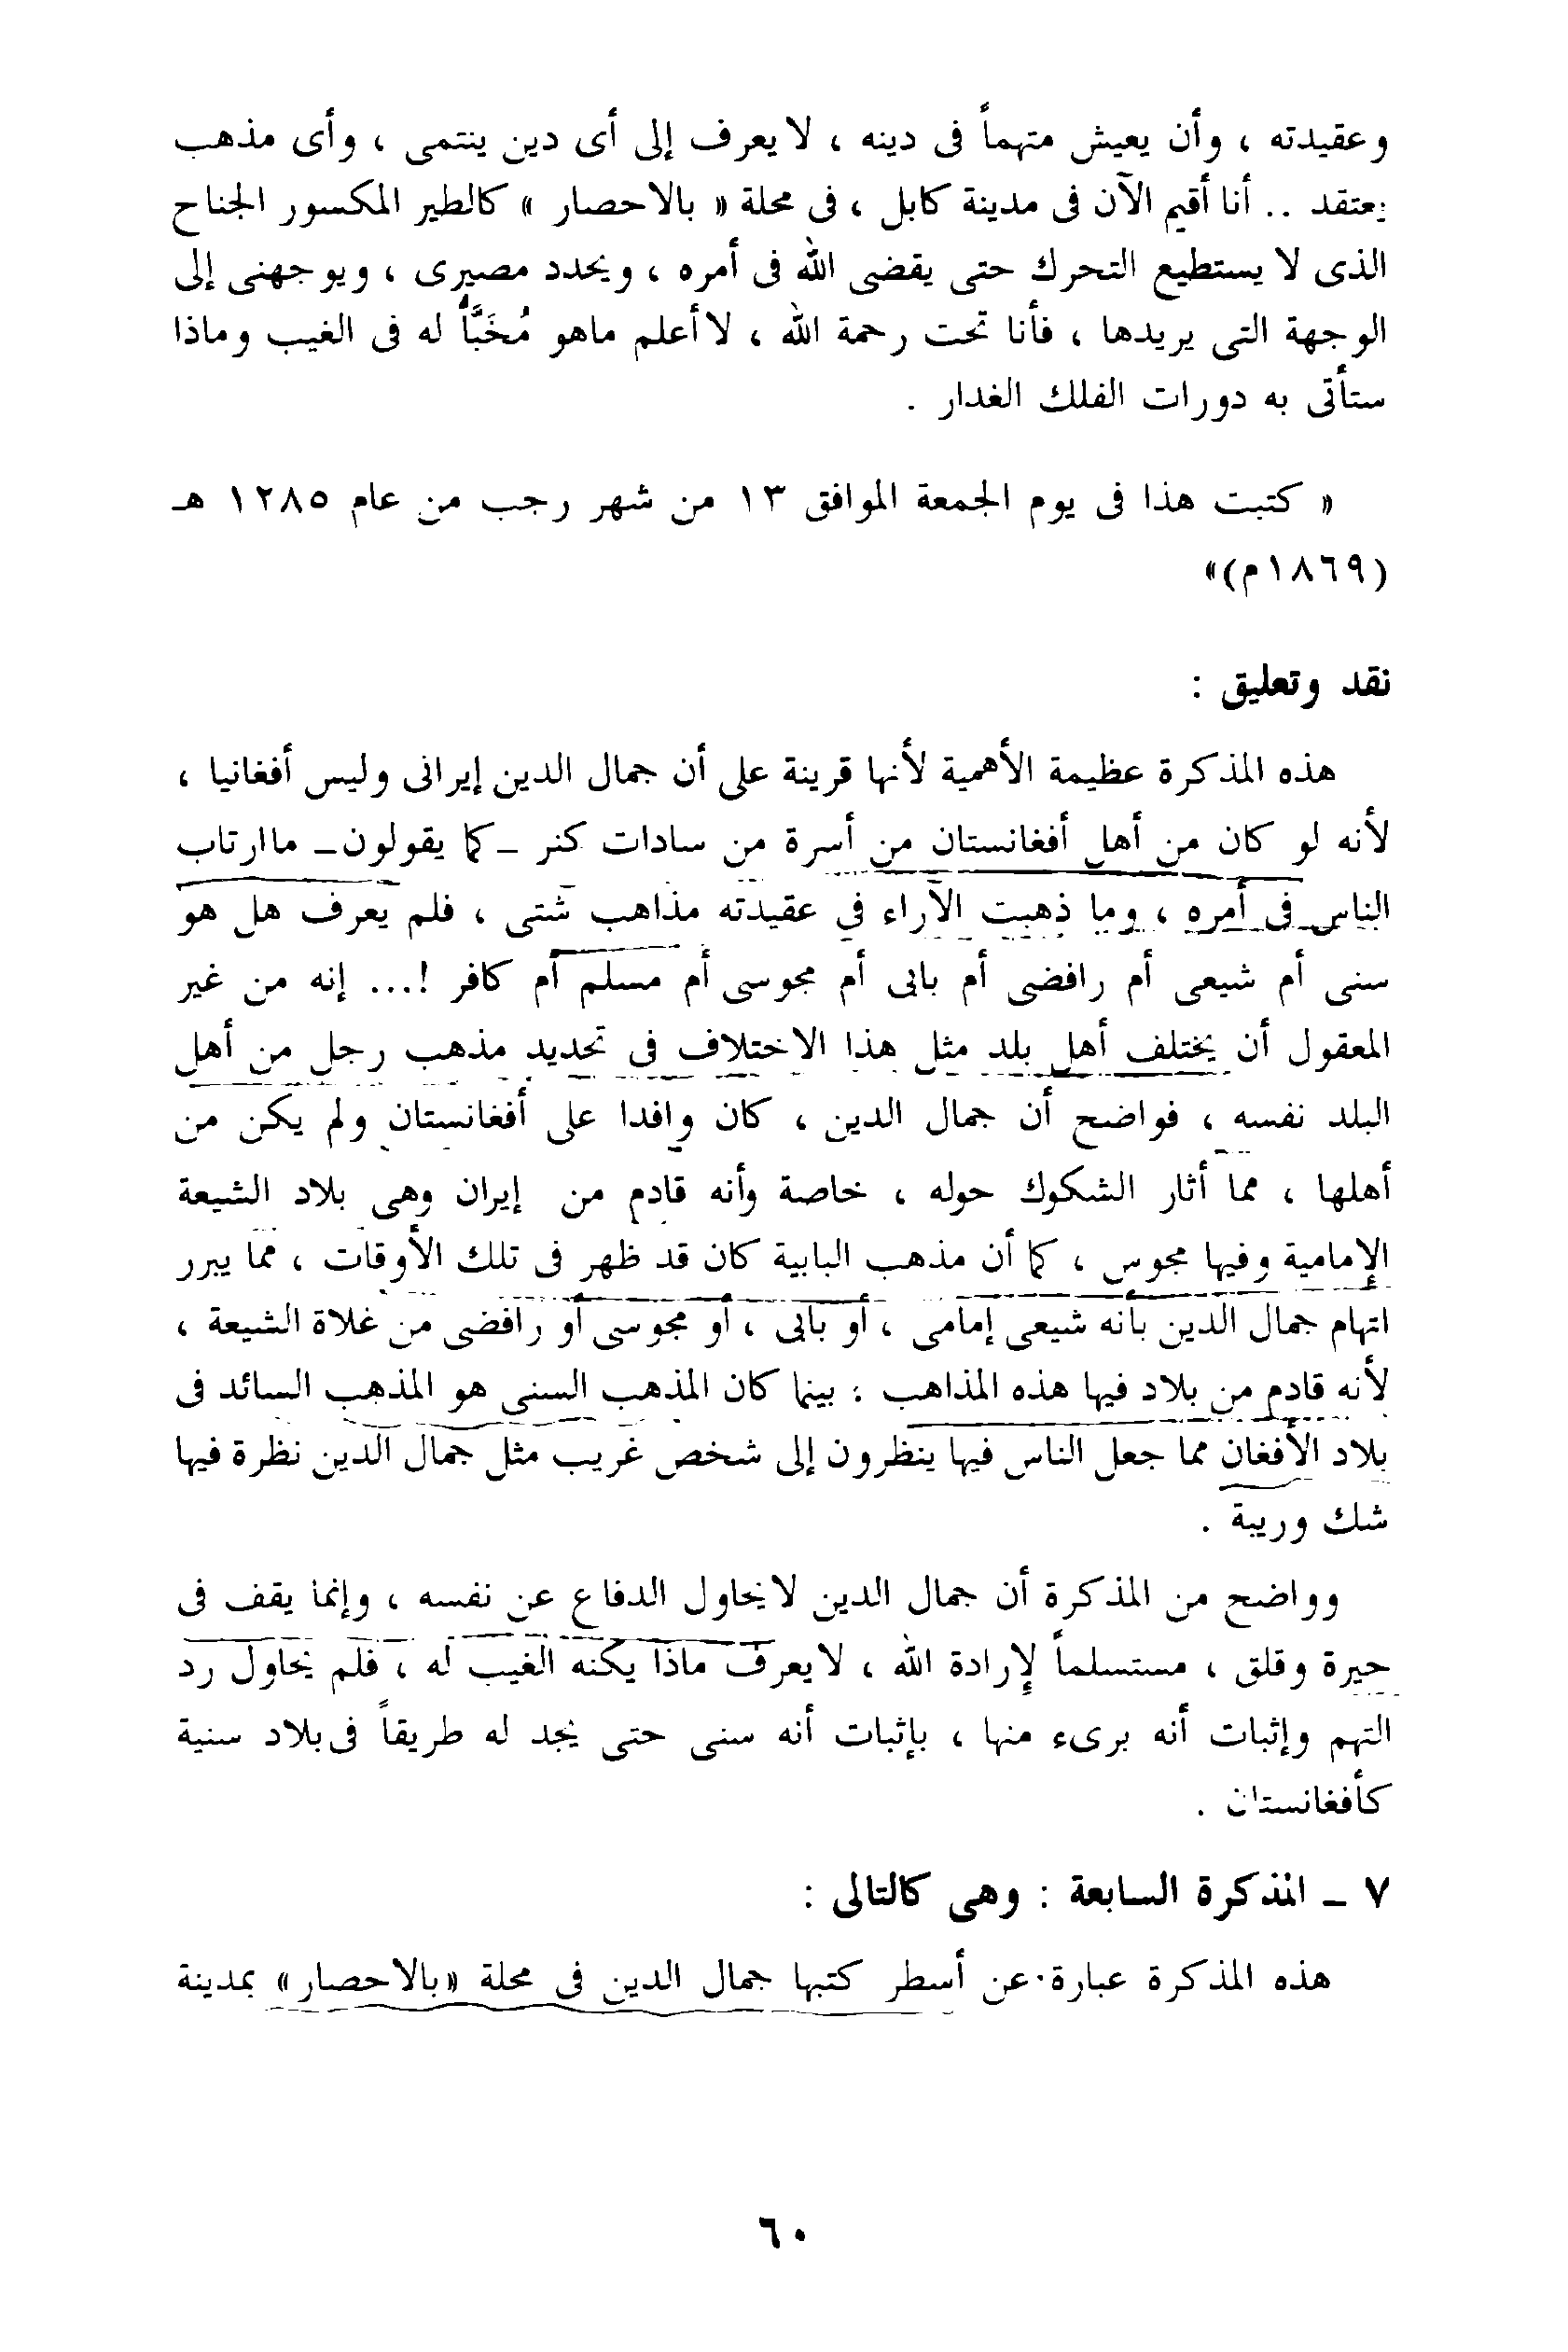 وعقيدته ، وأن يعيش متهماً فى دينه ، لا يعرف إلى أى دين ينتمى ، وأى مذهب
يعتقد .. أنا أقيم الآن فى مدينة كابل ، فى محلة « بالاحصار » كالطير المكسور الجناح
الذى لا يستطيع التحرك حتى يقضى الله فى أمره ، ويحدد مصيرى ، ويوجهنى إلى
الوجهة التى يريدها ، فأنا تحت رحمة الله ، لا أعلم ماهو مُخَبَّأ له فى الغيب وماذا
ستأتى به دورات الفلك الغدار .
« كتبت هذا فى يوم الجمعة الموافق ١٣ من شهر رجب من عام ١٢٨٥ هـ
(١٨٦٩م)»
نقد وتعليق :
هذه المذكرة عظيمة الأهمية لأنها قرينة على أن جمال الدين إيرانى وليس أفغانيا ،
لأنه لو كان من أهل أفغانستان من أسرة من سادات كنر _كما يقولون_ ماارتاب
الناس فى أمره ، وما ذهبت الآراء في عقيدته مذاهب شتى ، فلم يعرف هل هو
سنى أم شيعى أم رافضى أم بابى أم مجوسى أم مسلم أم كافر !... إنه من غير
المعقول أن يختلف أهل بلد مثل هذا الاختلاف فى تحديد مذهب رجل من أهل
البلد نفسه ، فواضح أن جمال الدين ، كان وافدا على أفغانستان ولم يكن من
أهلها ، مما أثار الشكوك حوله ، خاصة وأنه قادم من إيران وهى بلاد الشيعة
الإمامية وفيها مجوس ، كما أن مذهب البابية كان قد ظهر فى تلك الأوقات ، مما يبرر
اتهام جمال الدين بأنه شيعى إمامى ، أو بابى ، أو مجوسى أو رافضى من غلاة الشيعة ،
لأنه قادم من بلاد فيها هذه المذاهب ؛ بينما كان المذهب السنى هو المذهب السائد فى
بلاد الأفغان مما جعل الناس فيها ينظرون إلى شخص غريب مثل جمال الدين نظرة فيها
شك وريبة .
وواضح من المذكرة أن جمال الدين لايحاول الدفاع عن نفسه ، وإنما يقف فى
حيرة وقلق ، مستسلماً لإرادة الله ، لايعرف ماذا يكنه الغيب له ، فلم يحاول رد
التهم وإثبات أنه برىء منها ، بإثبات أنه سنى حتى يجد له طريقاً فى بلاد سنية
كأفغانستان .
٧ _ المذكرة السابعة : وهى كالتالى :
هذه المذكرة عبارة عن أسطر كتبها جمال الدين فى محلة «بالاحصار» بمدينة
٦٠